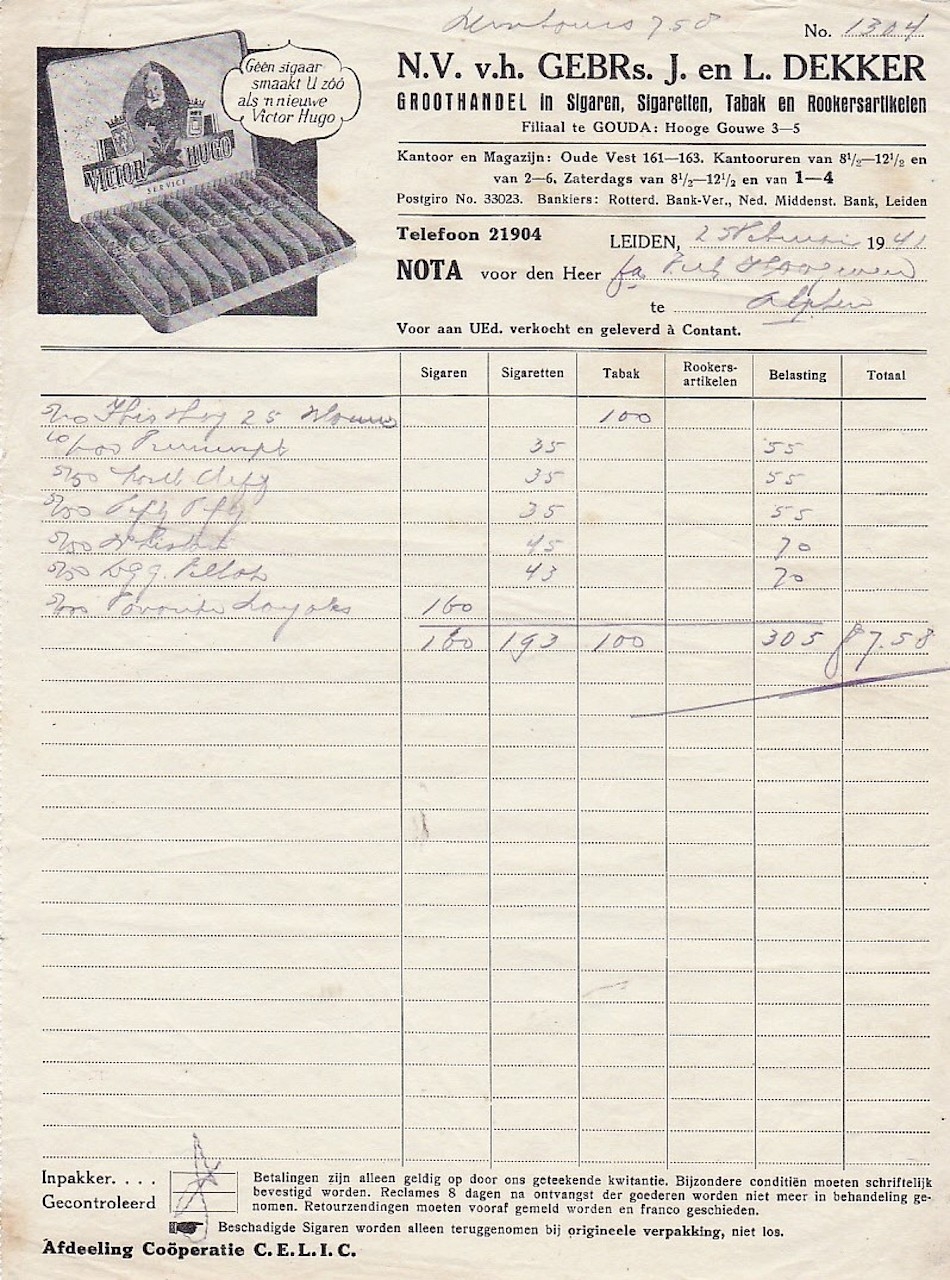 758
No. 1304
Géén sigaar
smaakt U zóó
als 'n nieuwe
Victor Hugo
VICTOR HUGO
SERVICE
N.V. v.h. GEBRs. J. en L. DEKKER
GROOTHANDEL in Sigaren, Sigaretten, Tabak en Rookersartikelen
Filiaal te GOUDA: Hooge Gouwe 3—5
Kantoor en Magazijn: Oude Vest 161—163. Kantooruren van 8½—12½ en
van 2—6. Zaterdags van 8½—12½ en van 1—4
Postgiro No. 33023. Bankiers: Rotterd. Bank-Ver., Ned. Middenst. Bank, Leiden
Telefoon 21904
LEIDEN, 2 Februari 1941
NOTA voor den Heer fa Piet Hoogeveen
te Alphen
Voor aan UEd. verkocht en geleverd à Contant.
Sigaren Sigaretten Tabak Rookers-artikelen Belasting Totaal
25 100
35 55
35 55
Fifty Fifty 35 55
45 70
Egg. 43 70
Favorite Longales 160
160 193 100 305 f 7.58
Inpakker. . . .
Gecontroleerd
Betalingen zijn alleen geldig op door ons geteekende kwitantie. Bijzondere conditiën moeten schriftelijk
bevestigd worden. Reclames 8 dagen na ontvangst der goederen worden niet meer in behandeling ge-
nomen. Retourzendingen moeten vooraf gemeld worden en franco geschieden.
Beschadigde Sigaren worden alleen teruggenomen bij origineele verpakking, niet los.
Afdeeling Coöperatie C.E.L.I.C.